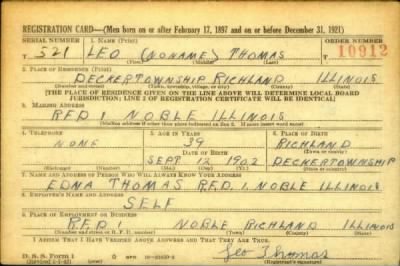 REGISTRATION CARD—(Men born on or after February 17, 1897 and on or before December 31, 1921)
SERIAL NUMBER 1. NAME (Print) ORDER NUMBER
T 521 LEO (NONAME) THOMAS T 10912
(First) (Middle) (Last)
2. PLACE OF RESIDENCE (Print)
DECKERTOWNSHIP RICHLAND ILLINOIS
(Number and street) (Town, township, village, or city) (County) (State)
[THE PLACE OF RESIDENCE GIVEN ON THE LINE ABOVE WILL DETERMINE LOCAL BOARD
JURISDICTION; LINE 2 OF REGISTRATION CERTIFICATE WILL BE IDENTICAL]
3. MAILING ADDRESS
RFD 1 NOBLE ILLINOIS
[Mailing address if other than place indicated on line 2. If same insert word same]
4. TELEPHONE 5. AGE IN YEARS 6. PLACE OF BIRTH
NONE 39 RICHLAND
DATE OF BIRTH (Town or county)
SEPT 12 1902 DECKERTOWNSHIP
(Exchange) (Number) (Mo.) (Day) (Yr.) (State or country)
7. NAME AND ADDRESS OF PERSON WHO WILL ALWAYS KNOW YOUR ADDRESS
EDNA THOMAS R.F.D. 1. NOBLE ILLINOIS
8. EMPLOYER'S NAME AND ADDRESS
SELF
9. PLACE OF EMPLOYMENT OR BUSINESS
R.F.D. 1 NOBLE RICHLAND ILLINOIS
(Number and street or R. F. D. number) (Town) (County) (State)
I AFFIRM THAT I HAVE VERIFIED ABOVE ANSWERS AND THAT THEY ARE TRUE.
D. S. S. Form 1
Leo Thomas
(Registrant's signature)